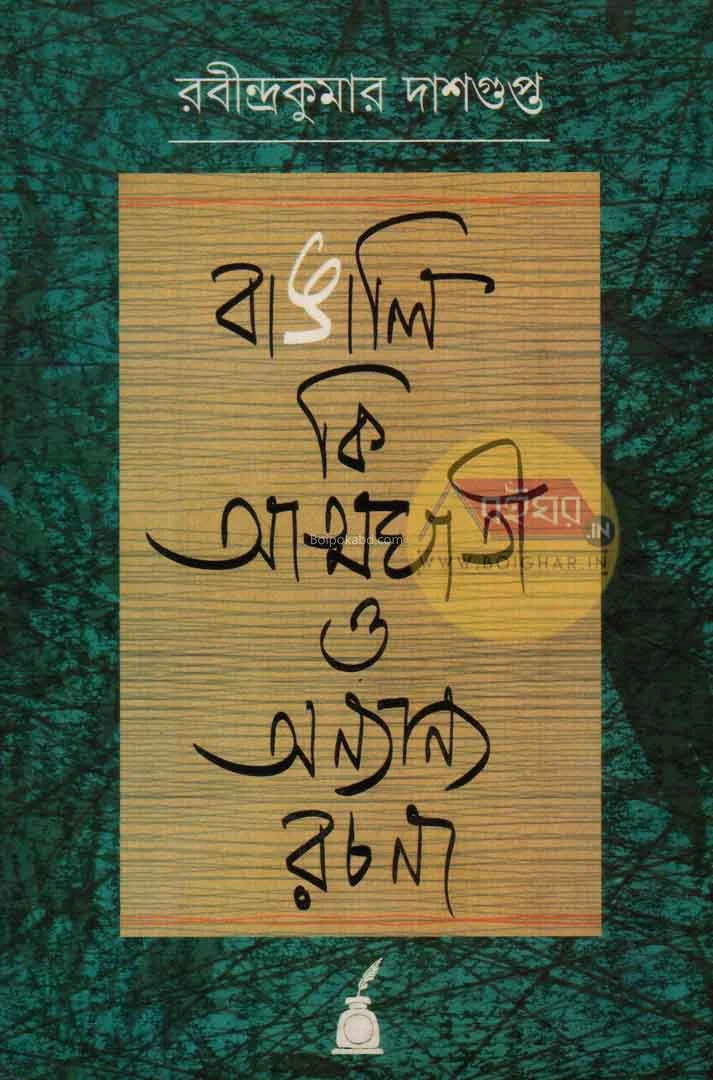 রবীন্দ্রকুমার দাশগুপ্ত
বাঙালি
কি
আত্মঘাতী
বইঘর
.IN
Boipokabd.com
WWW.BOIGHAR.IN
ও
অন্যান্য
রচনা